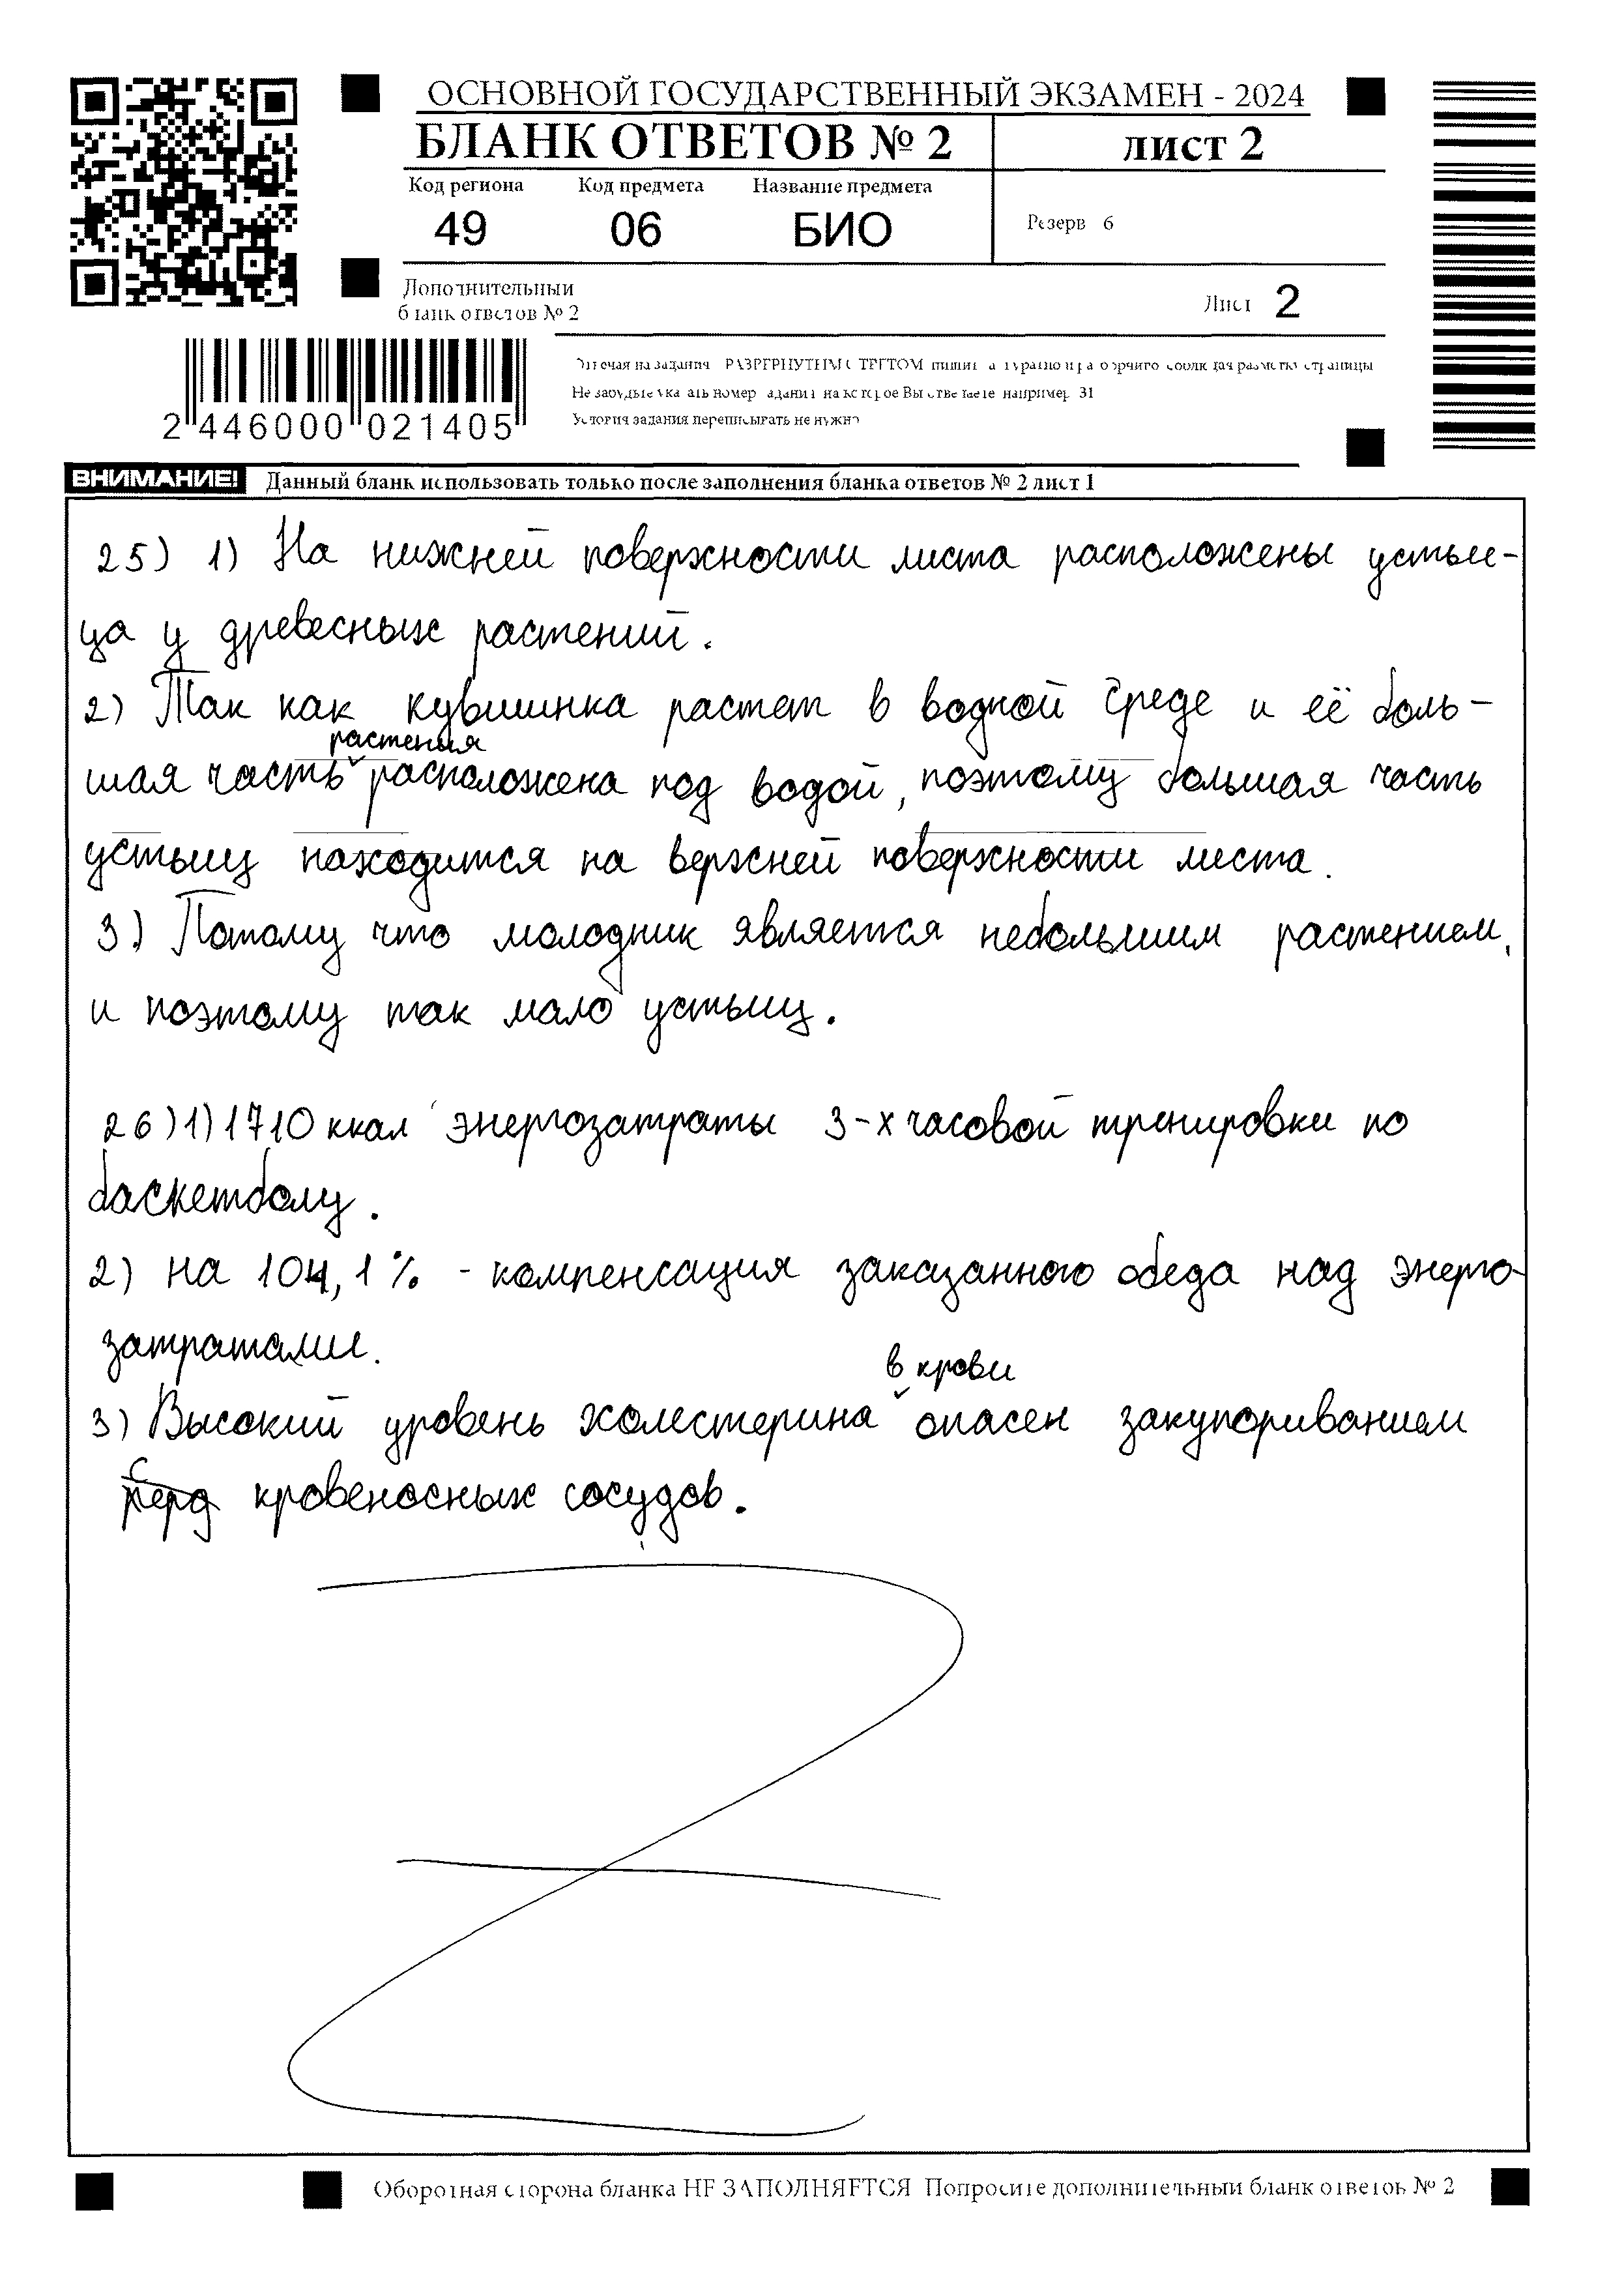 ОСНОВНОЙ ГОСУДАРСТВЕННЫЙ ЭКЗАМЕН - 2024
БЛАНК ОТВЕТОВ № 2
ЛИСТ 2
Код региона Код предмета Название предмета
49 06 БИО
Резерв 6
Дополнительный
бланк ответов № 2
Лист 2
2 446000 021405
Отвечая на задания РАЗВЕРНУТЫМ ОТВЕТОМ, пишите аккуратно и разборчиво, соблюдая разметку страницы
Не забудьте указать номер задания, на которое Вы отвечаете, например, 31
Условия задания переписывать не нужно
ВНИМАНИЕ! Данный бланк использовать только после заполнения бланка ответов № 2 лист 1
25) 1) На нижней поверхности листа расположены устьи-
ца у древесных растений.
2) Так как кувшинка растет в водной среде и её боль-
растения
шая часть расположена под водой, поэтому большая часть
устьиц находится на верхней поверхности листа.
3) Потому что молодник является небольшим растением,
и поэтому так мало устьиц.
26) 1) 1710 ккал энергозатраты 3-х часовой тренировки по
баскетболу.
2) на 104,1% - компенсация заказанного обеда над энерго-
затратами.
в крови
3) Высокий уровень холестерина опасен закупориванием
кровеносных сосудов.
Оборотная сторона бланка НЕ ЗАПОЛНЯЕТСЯ Попросите дополнительный бланк ответов № 2